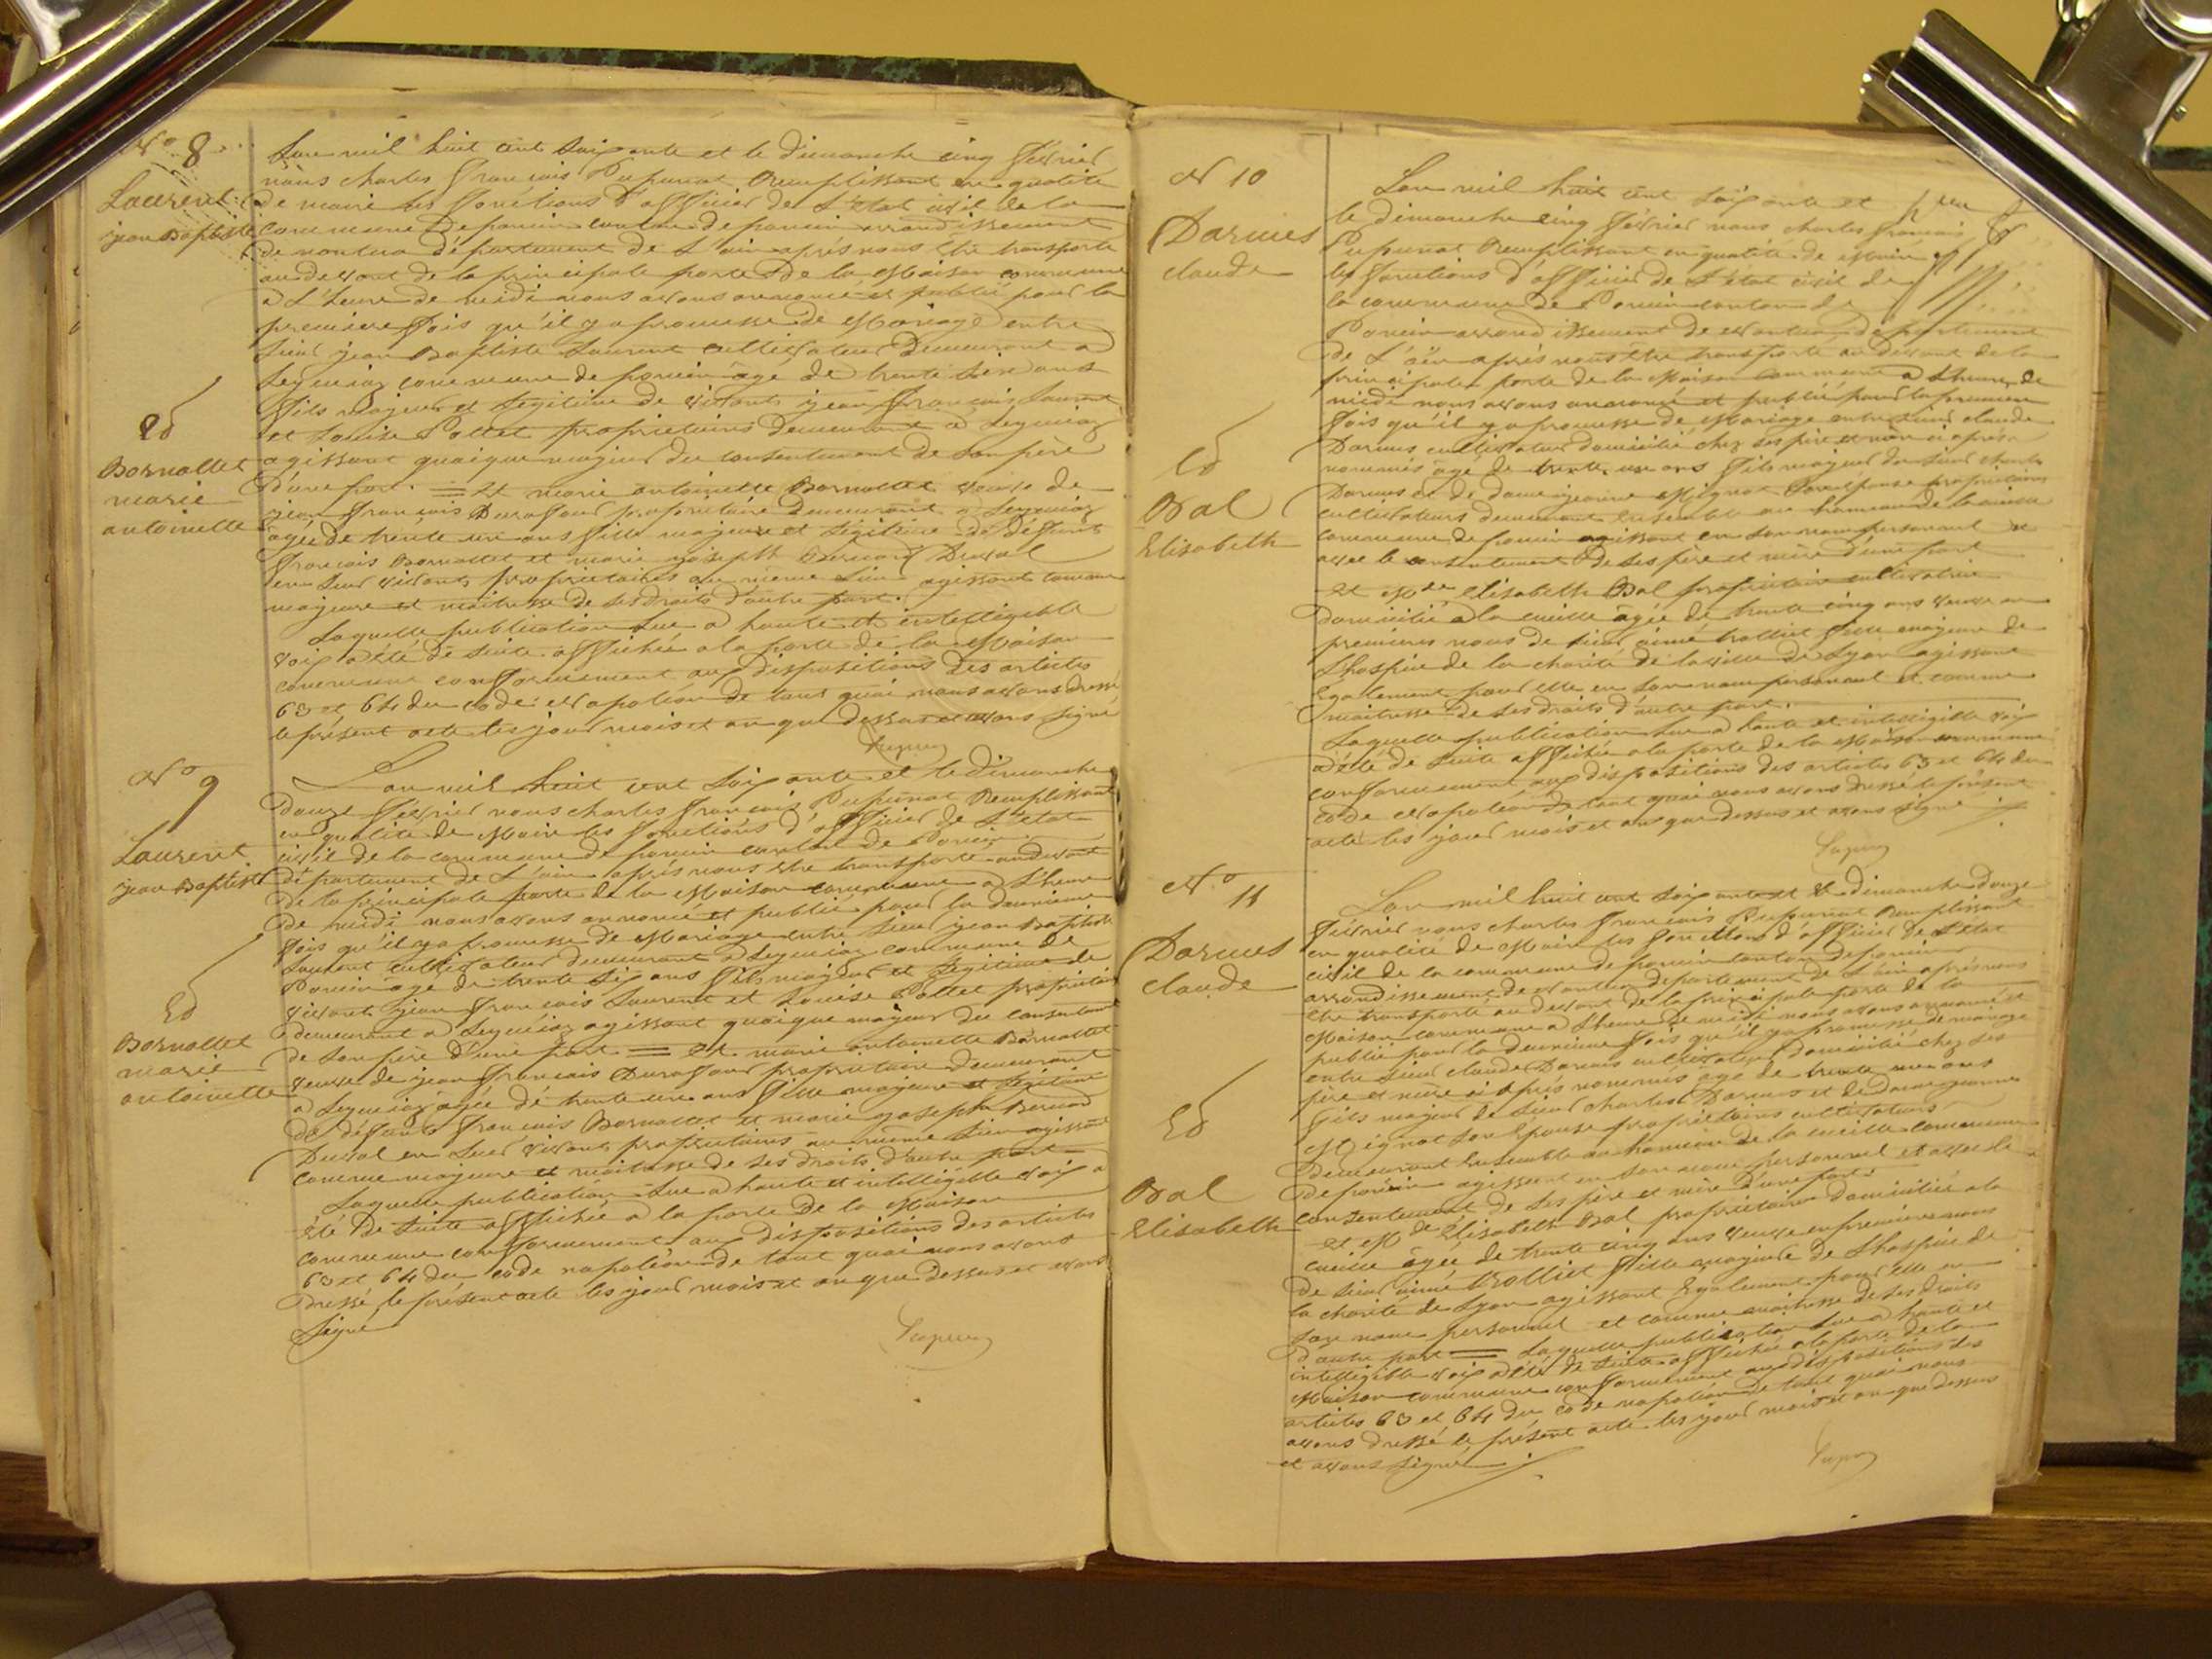 N° 8
Laurent
jean Baptiste
et
Bornallet
marie
antoinette
Lan mil huit cent soixante et le dimanche cinq février
nous charles françois Pupunat Remplissant en qualité
de maire les fonctions d'officier de L'Etat civil de la
commune de poncin canton de poncin arrondissement
de nantua département de L'ain après nous être transporté
au devant de la principale porte de la Maison commune
a L'heure de midi nous avons annoncé et publié pour la
première fois qu'il y a promesse de Mariage entre
Sieur jean Baptiste Laurent cultivateur demeurant a
Leymiaz commune de poncin âgé de trente six ans
fils majeur et légitime de vivants jean françois Laurent
et Louise Pollet propriétaires demeurant a Leymiaz
agissant quoique majeur du consentement de son père
d'une part. = Et marie antoinette Bornallet veuve de
jean françois Durafour propriétaire demeurant a Leymiaz
âgée de trente un ans fille majeure et légitime de défunts
françois Bornallet et marie joseph Bernard Duval
en leur vivants propriétaires au même lieu agissant comme
majeure et maitresse de ses droits d'autre part.
Laquelle publication lue a haute et intelligible
voix a été de suite affichée a la porte de la Maison
commune conformément aux dispositions des articles
63 et 64 du code Napoléon de tout quoi nous avons dressé
le présent acte les jour mois et an que dessus et avons signé
N° 9
Laurent
jean Baptiste
et
Bornallet
marie
antoinette
Lan mil huit cent soixante et le dimanche
douze février nous charles françois Pupunat Remplissant
en qualité de Maire les fonctions d'officier de L'Etat
civil de la commune de poncin canton de Poncin
département de L'ain après nous être transporté au devant
de la principale porte de la Maison commune a L'heure
de midi nous avons annoncé et publié pour la deuxième
fois qu'il y a promesse de Mariage entre Sieur jean Baptiste
Laurent cultivateur demeurant a Leymiaz commune de
Poncin âgé de trente six ans fils majeur et légitime de
vivants jean françois Laurent et Louise Pollet propriétaires
demeurant a Leymiaz agissant quoique majeur du consentement
de son père d'une part = Et marie antoinette Bornallet
veuve de jean françois Durafour propriétaire demeurant
a Leymiaz âgée de trente un ans fille majeure et légitime
de défunts françois Bornallet et marie joseph Bernard
Duval en leur vivants propriétaires au même lieu agissant
comme majeure et maitresse de ses droits d'autre part
Laquelle publication lue a haute et intelligible voix a
été de suite affichée a la porte de la Maison
commune conformément aux dispositions des articles
63 et 64 du code napoléon de tout quoi nous avons
dressé le présent acte les jour mois et an que dessus et avons
Signé
N 10
Darmes
claude
et
Bal
Elisabeth
Lan mil huit cent soixante et
le dimanche cinq février nous charles françois
Pupunat Remplissant en qualité de Maire
les fonctions d'officier de L'état civil de
la commune de Poncin canton de
Poncin arrondissement de nantua département
de L'ain après nous être transporté au devant de la
principale porte de la Maison commune a L'heure de
midi nous avons annoncé et publié pour la première
fois qu'il y a promesse de Mariage entre Sieur claude
Darmes cultivateur domicilié chez ses père et mère ci après
nommés âgé de trente un ans fils majeur de Sieur charles
Darmes et de dame jeanne Mignat son épouse propriétaires
cultivateurs demeurant Ensemble au hameau de la cueille
commune de poncin agissant en son nom personnel et
avec le consentement de ses père et mère d'une part
Et Mde Elisabeth Bal propriétaire cultivatrice
domiciliée a la cueille âgée de trente cinq ans veuve en
premières noces de Sieur aimé trolliet fille majeure de
L'hospice de la charité de la ville de Lyon agissant
Egalement pour Elle en son nom personnel et comme
maitresse de ses droits d'autre part.
Laquelle publication lue a haute et intelligible voix
a été de suite affichée a la porte de la Maison commune
conformément aux dispositions des articles 63 et 64 du
code Napoléon de tout quoi nous avons dressé le présent
acte les jour mois et an que dessus et avons signé
N° 11
Darmes
claude
et
Bal
Elisabeth
Lan mil huit cent soixante et le dimanche douze
février nous charles françois Pupunat Remplissant
en qualité de Maire les fonctions d'officier de L'état
civil de la commune de poncin canton de poncin
arrondissement de nantua département de L'ain après nous
être transporté au devant de la principale porte de la
Maison commune a L'heure de midi nous avons annoncé et
publié pour la deuxième fois qu'il y a promesse de mariage
entre Sieur claude Darmes cultivateur domicilié chez ses
père et mère ci après nommés âgé de trente un ans
fils majeur de Sieur charles Darmes et de dame jeanne
Mignat son Epouse propriétaires cultivateurs
demeurant Ensemble au hameau de la cueille commune
de poncin agissant en son nom personnel et avec le
consentement de ses père et mère d'une part
Et Mde Elisabeth Bal propriétaire domiciliée a la
cueille âgée de trente cinq ans veuve en premières noces
de Sieur aimé trolliet fille majeure de L'hospice de
la charité de Lyon agissant Egalement pour Elle en
son nom personnel et comme maitresse de ses droits
d'autre part = Laquelle publication lue a haute et
intelligible voix a été de suite affichée a la porte de la
Maison commune conformément aux dispositions des
articles 63 et 64 du code napoléon de tout quoi nous
avons dressé le présent acte les jour mois et an que dessus
et avons signé